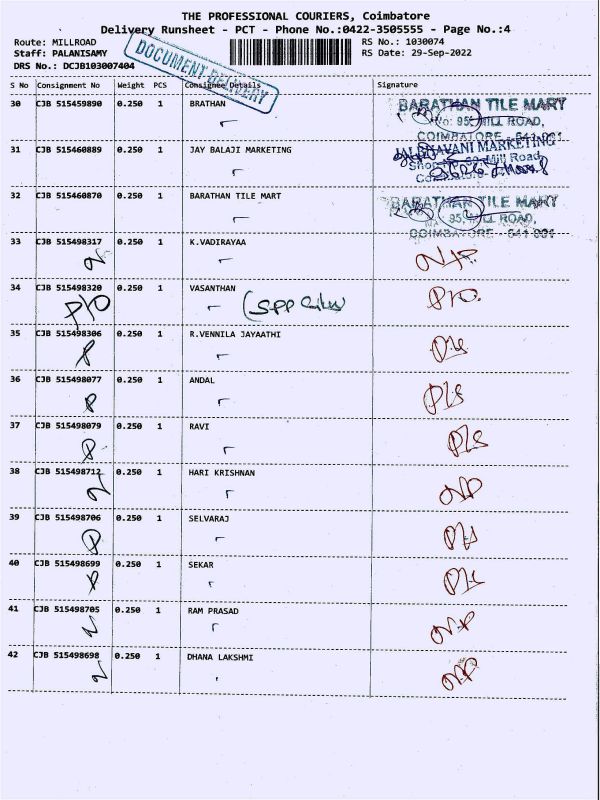 THE PROFESSIONAL COURIERS, Coimbatore
Delivery Runsheet - PCT - Phone No.:0422-3505555 - Page No.:4
Route: MILLROAD
Staff: PALANISAMY
DRS No.: DCJB103007404
DOCUMENT DELIVERY
RS No.: 1030074
RS Date: 29-Sep-2022
S No Consignment No Weight PCS Consignee Details Signature
30 CJB 515459890 0.250 1 BRATHAN
BARATHAN TILE MART
95, MILL ROAD,
COIMBATORE - 641 001
31 CJB 515460889 0.250 1 JAY BALAJI MARKETING
MARKETING
Mill Road
32 CJB 515460870 0.250 1 BARATHAN TILE MART
BARATHAN TILE MART
95, MILL ROAD,
COIMBATORE - 641 001
33 CJB 515498317 0.250 1 K.VADIRAYAA
34 CJB 515498320 0.250 1 VASANTHAN
P/O
P/O.
35 CJB 515498306 0.250 1 R.VENNILA JAYAATHI
36 CJB 515498077 0.250 1 ANDAL
P/S
37 CJB 515498079 0.250 1 RAVI
P/S
38 CJB 515498712 0.250 1 HARI KRISHNAN
39 CJB 515498706 0.250 1 SELVARAJ
40 CJB 515498699 0.250 1 SEKAR
41 CJB 515498705 0.250 1 RAM PRASAD
42 CJB 515498698 0.250 1 DHANA LAKSHMI